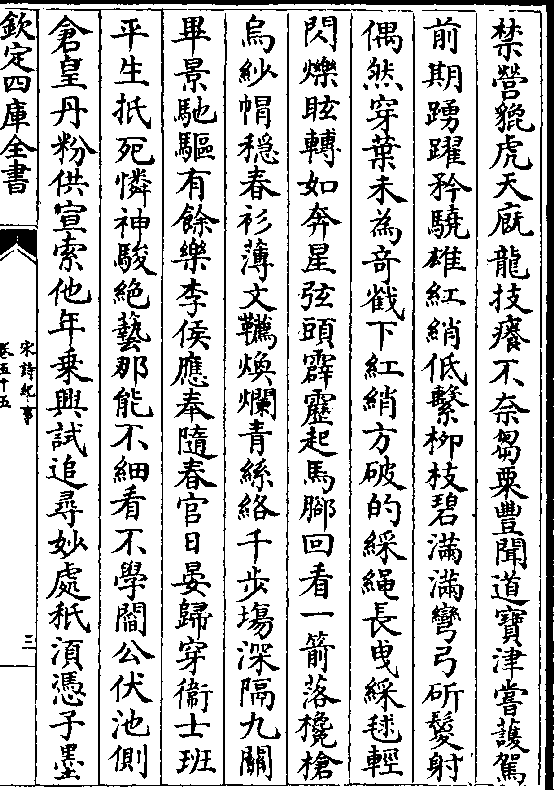 禁營貔虎天廐龍技癢不奈芻粟豐聞道寶津嘗護駕
前期踴躍矜驍雄紅綃低繫柳枝碧滿滿彎弓斫鬉射
偶然穿葉未為竒戳下紅綃方破的綵繩長曳綵毬輕
閃爍眩轉如奔星弦頭霹靂起馬腳回看一箭落欃槍
烏紗帽穏春衫薄文韉煥爛青絲絡千步塲深隔九關
畢景馳驅有餘樂李侯應奉隨春官日晏歸穿衞士班
平生抵死憐神駿絶藝那能不細看不學閻公伏池側
倉皇丹粉供宣索他年乗興試追尋妙處秖湏憑子墨
欽定四庫全書
宋詩紀事
卷五十五
三